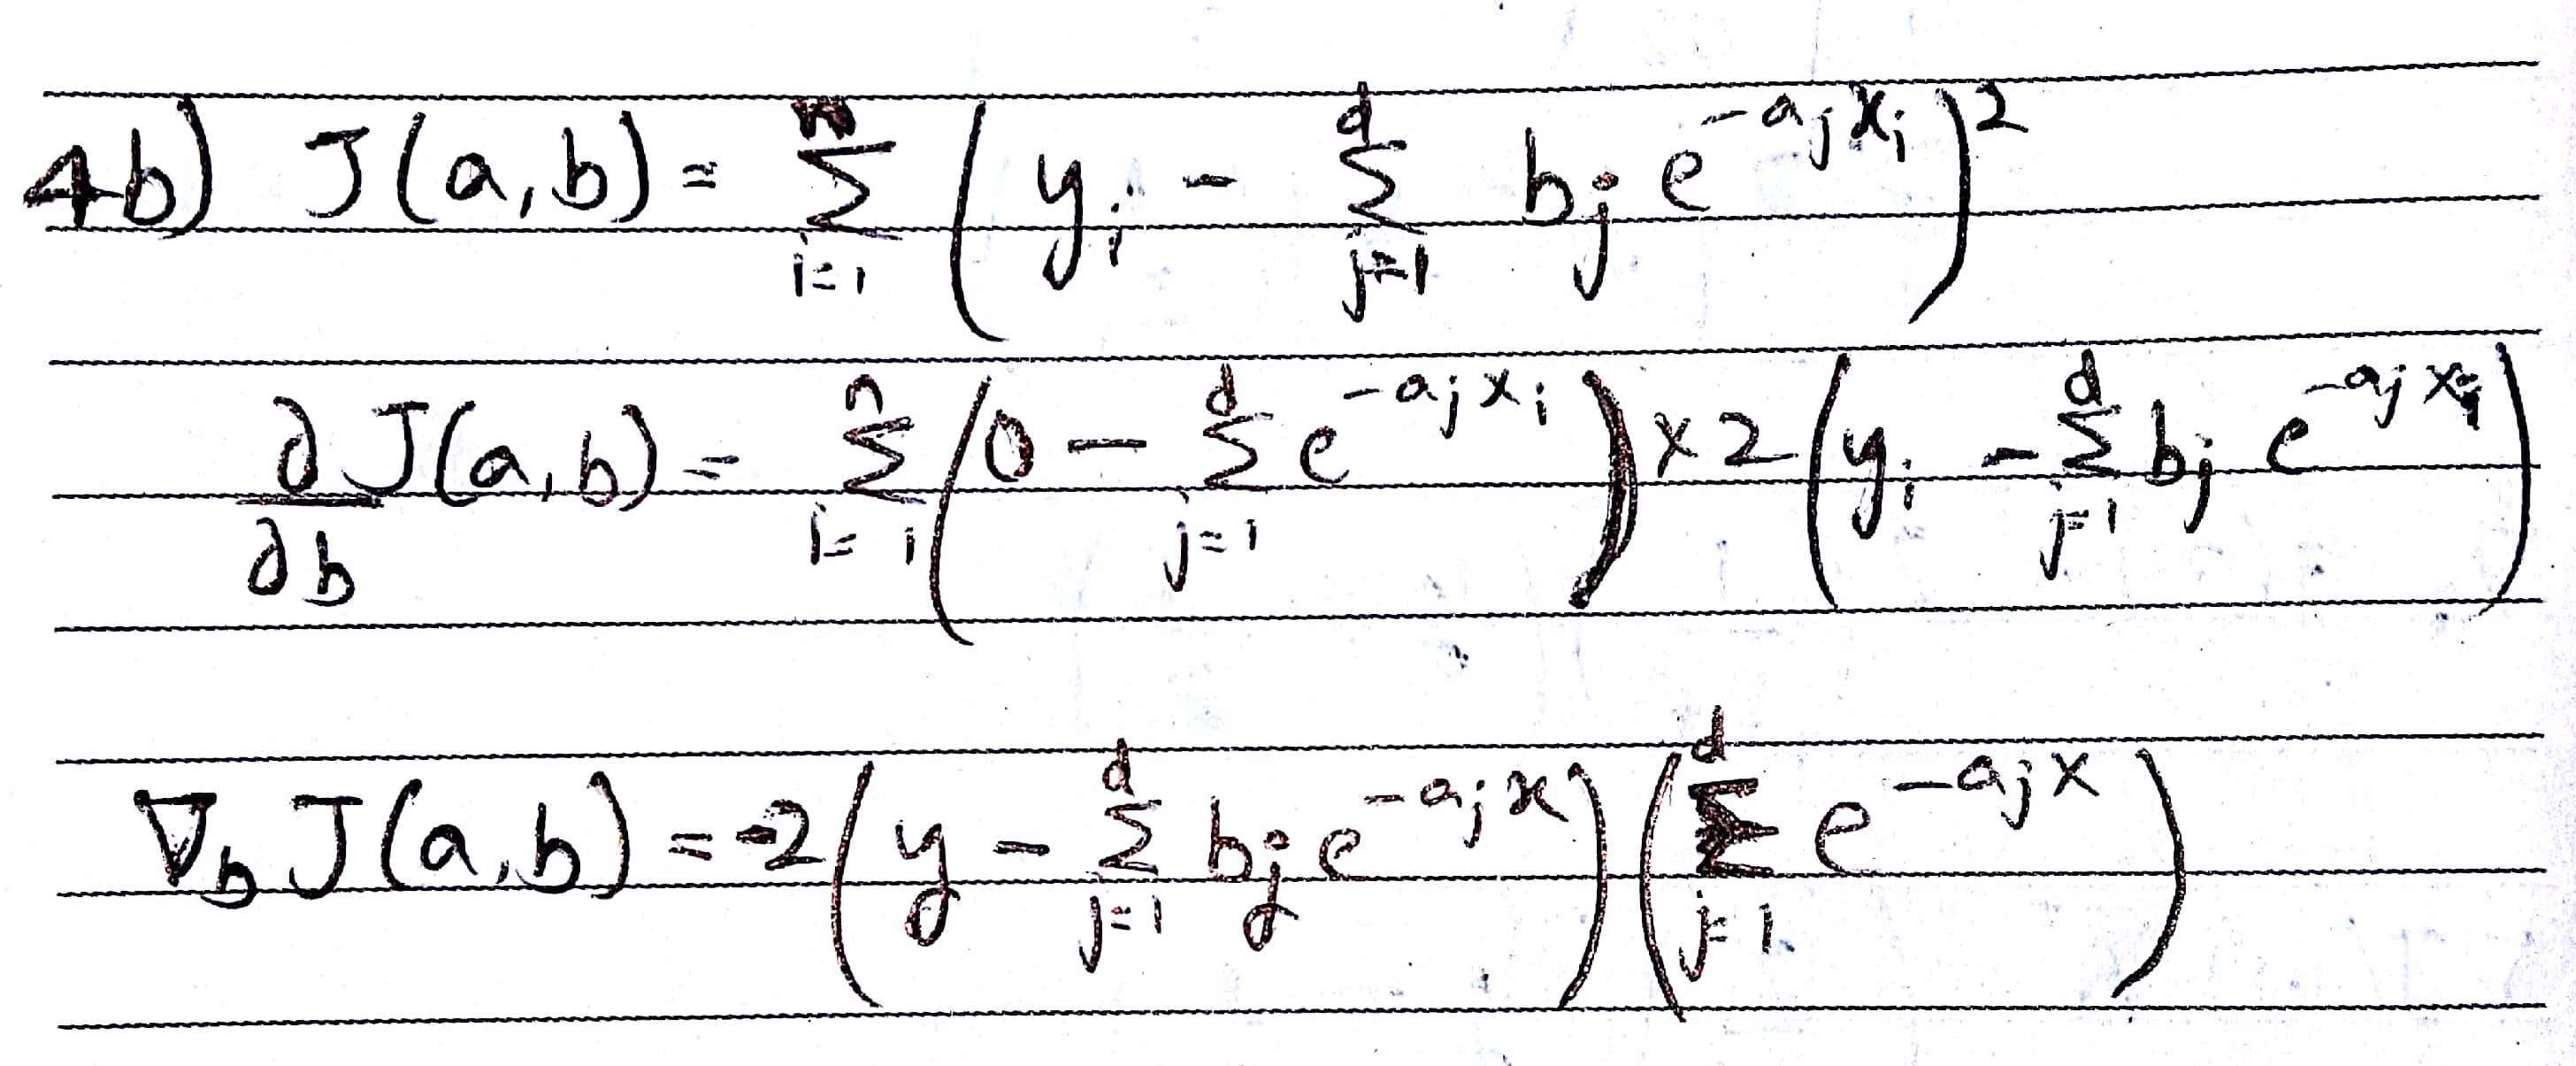 4b) J(a,b) = \sum_{i=1}^{n} ( y_i - \sum_{j=1}^{d} b_j e^{-a_j x_i} )^2
\frac{\partial}{\partial b} J(a,b) = \sum_{i=1}^{n} ( 0 - \sum_{j=1}^{d} e^{-a_j x_i} ) × 2 ( y_i - \sum_{j=1}^{d} b_j e^{-a_j x_i} )
∇_b J(a,b) = -2 ( y - \sum_{j=1}^{d} b_j e^{-a_j x} ) ( \sum_{j=1}^{d} e^{-a_j x} )